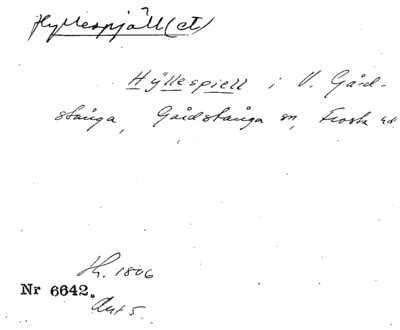 Hyllespjäll(et)
Hÿllespiell i V. Gård-
stånga, Gårdstånga sn, Frosta hd.
H. 1806
Nr 6642.
Ant 5.